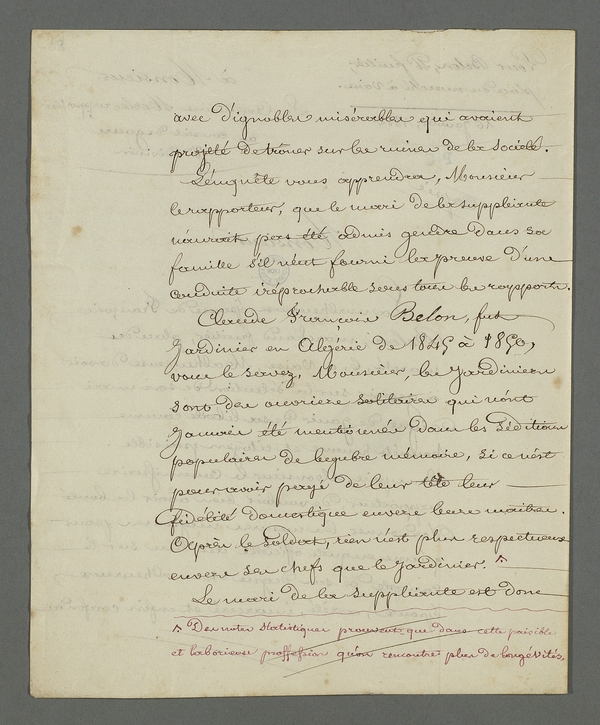 avec d'ignobles misérables qui avaient
projété de trôner sur les ruines de la société.
L'enquête vous apprendra, Monsieur
le rapporteur, que le mari de la suppliante
n'aurait pas été admis gendre dans sa
famille s'il n'eût fourni la preuve d'une
conduite iréprochable sous tous les rapports.
Claude François Belon, fut
Jardinier en Algérie de 1845 à 1850,
vous le savez, Monsieur, les Jardiniers
sont des ouvriers solitaires qui n'ont
Jamais été mentionnés dans les Séditions
populaires de lugubre mémoire, si ce n'est
pour avoir payé de leur tête leur
fidélité domestique envers leurs maîtres.
Après le Soldat, rien n'est plus respectueux
envers ses chefs que le Jardinier.
Le mari de la suppliante est donc
Des notes statistiques prouvent que dans cette paisible
et laborieuse proffession qu'on rencontre plus de longévités.